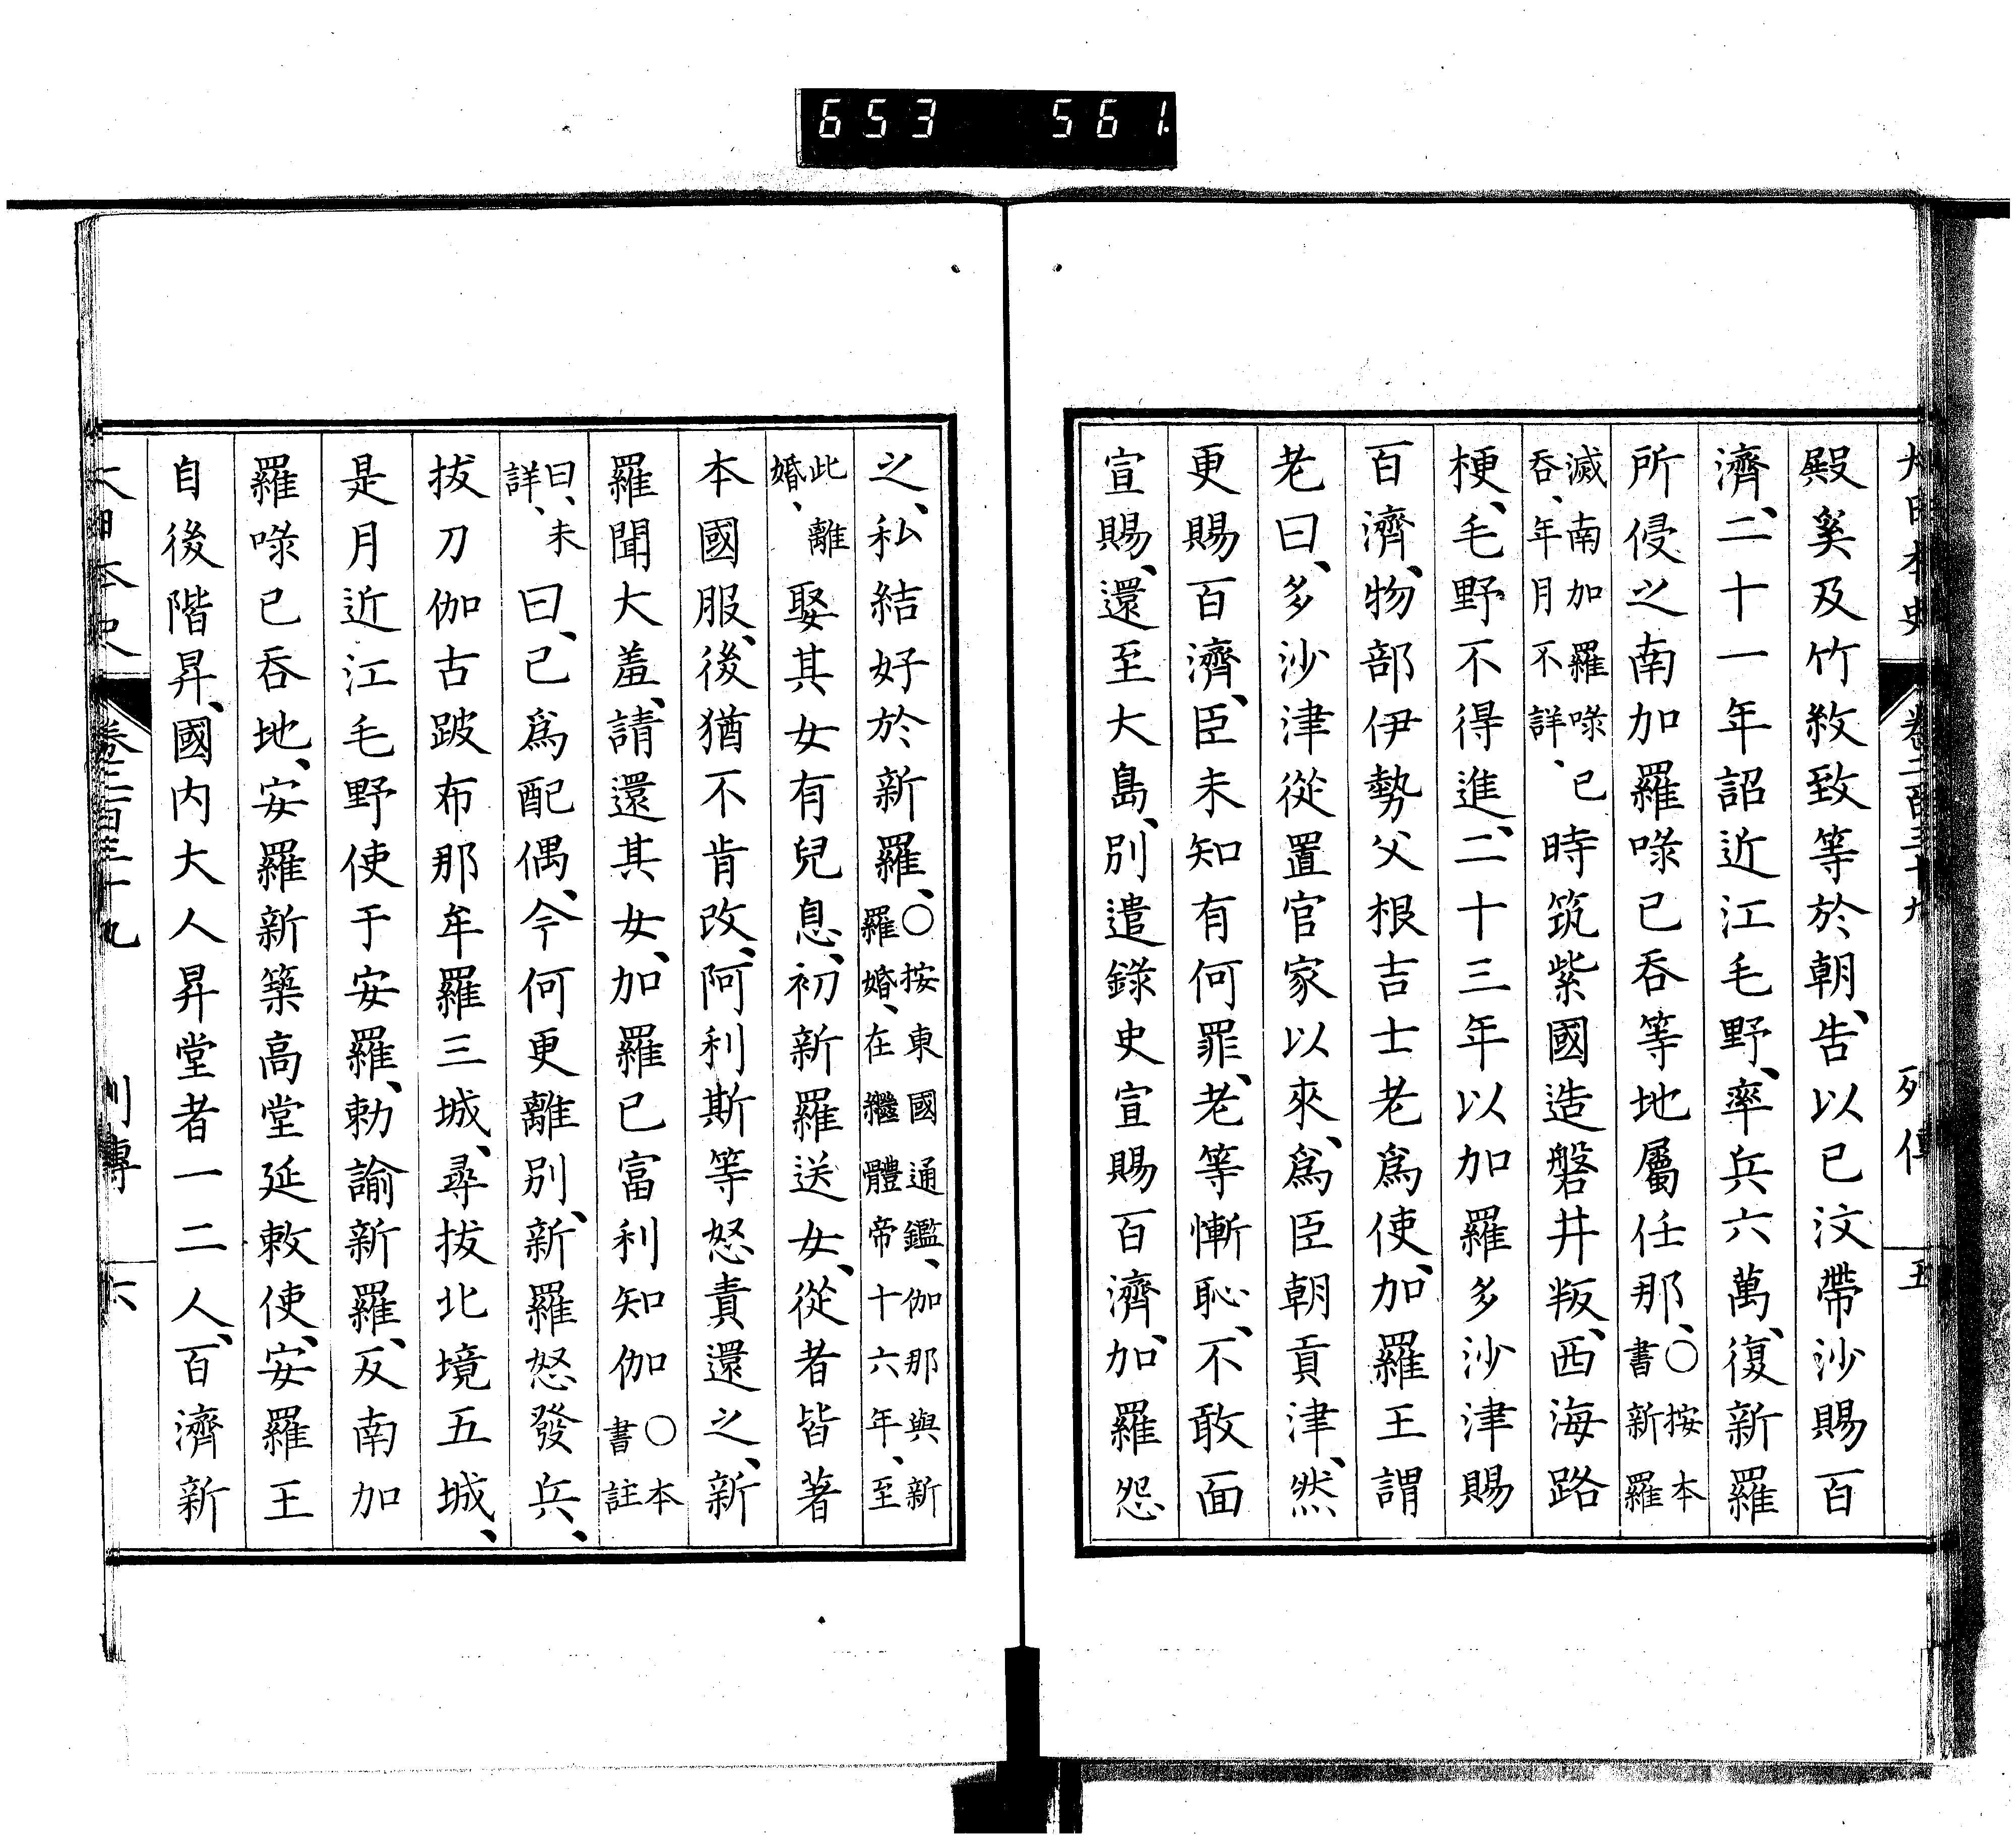 653 561.
大日本史 卷二百三十九 列傳 五
殿奚及竹敄致等於朝、告以已汶帶沙賜百
濟、二十一年詔近江毛野、率兵六萬、復新羅
所侵之南加羅㖨已吞等地屬任那、〇按本書新羅
滅南加羅㖨已吞、年月不詳、時筑紫國造磐井叛、西海路
梗、毛野不得進、二十三年以加羅多沙津賜
百濟、物部伊勢父根吉士老爲使、加羅王謂
老曰、多沙津從置官家以來、爲臣朝貢津、然
更賜百濟、臣未知有何罪、老等慚恥、不敢面
宣賜、還至大島、別遣錄史宣賜百濟、加羅怨
之、私結好於新羅、〇按東國通鑑、伽那與新羅婚、在繼體帝十六年、至
此離婚、娶其女有兒息、初新羅送女、從者皆著
本國服、後猶不肯改、阿利斯等怒責還之、新
羅聞大羞、請還其女、加羅已富利知伽〇本書註
曰、未詳、曰、已爲配偶、今何更離別、新羅怒發兵、
拔刀伽古跛布那牟羅三城、尋拔北境五城、
是月近江毛野使于安羅、勅諭新羅、反南加
羅㖨已吞地、安羅新築高堂延敕使、安羅王
自後階昇、國内大人昇堂者一二人、百濟新
大日本史 卷二百三十九 列傳 六